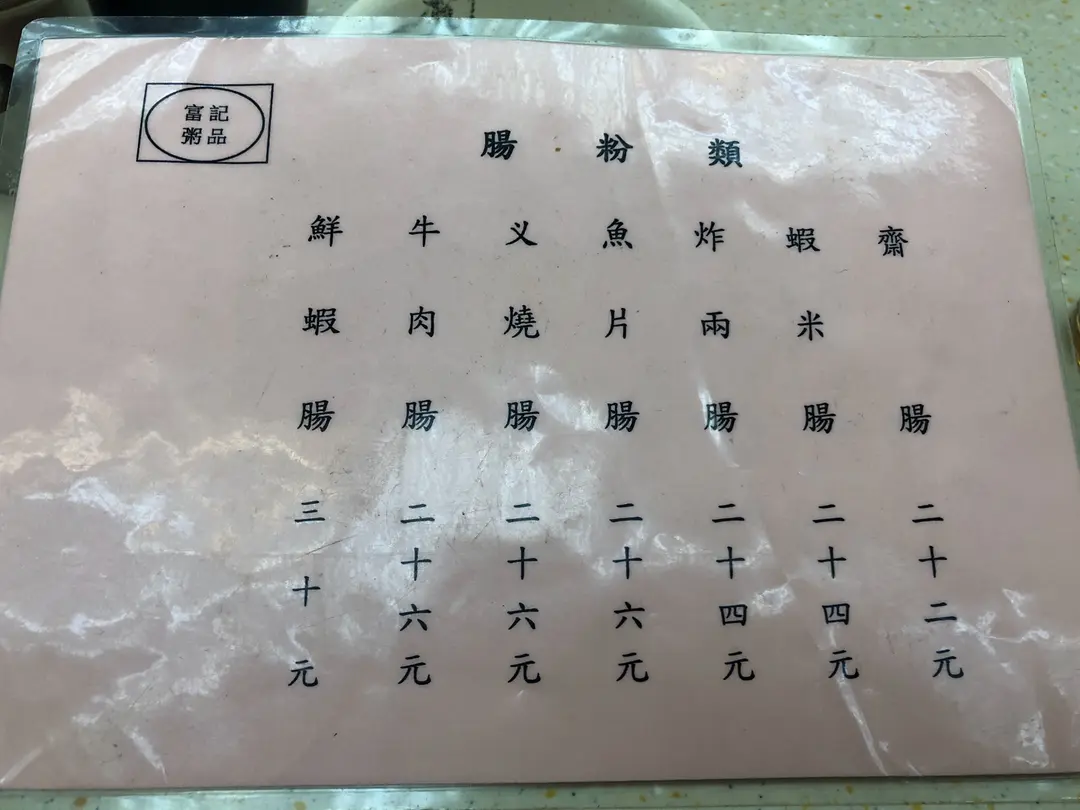 富記
粥品
腸粉類
齋腸二十二元
蝦米腸二十四元
炸兩腸二十四元
魚片腸二十六元
义燒腸二十六元
牛肉腸二十六元
鮮蝦腸三十元